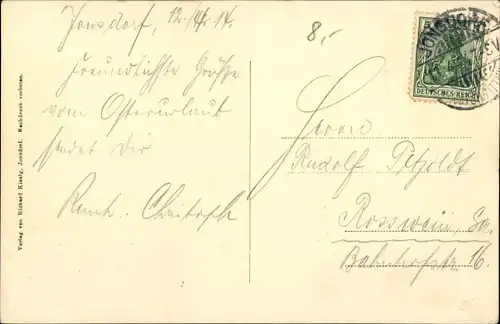 Jonsdorf, 12./4. 14.
8,-
Freundlichste Grüße
vom Osterurlaub
sendet Dir
Christoph
Herrn
Rudolf Petzoldt
Rosswein, Sa.
Bahnhofstr. 16.
JONSDORF
DEUTSCHES REICH
Verlag von Richard Kissig, Jonsdorf. Nachdruck verboten.